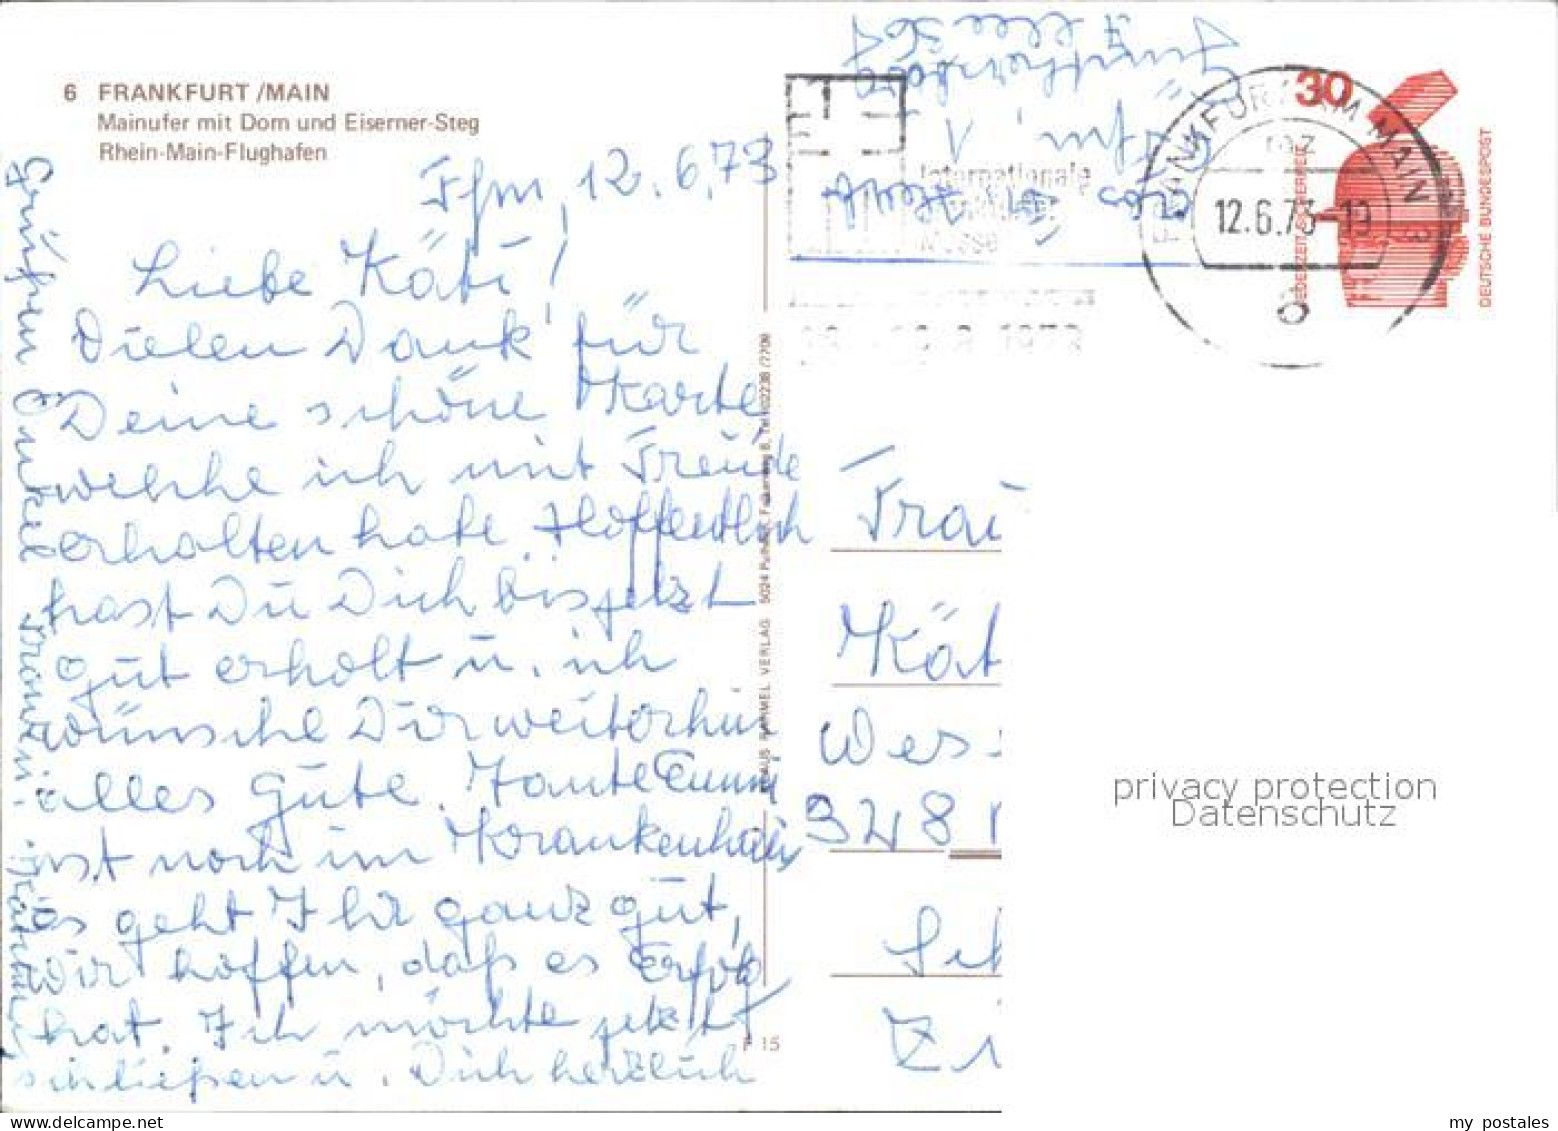 6 FRANKFURT /MAIN
Mainufer mit Dom und Eiserner-Steg
Rhein-Main-Flughafen
Ffm, 12.6.73
Liebe Käti!
Vielen Dank für
Deine schöne Karte
welche ich mit Freude
erhalten habe. Hoffentlich
hast Du Dich bis jetzt
gut erholt u. ich
wünsche Dir weiterhin
alles Gute. Tante Emmi
ist noch im Krankenhaus
es geht Ihr ganz gut,
wir hoffen, daß es Erfolg
hat. Ich möchte jetzt
schließen u. Dich herzlich
grüßen
KLAUS RAHMEL VERLAG 5024 Pulheim
F 15
Ffm, 1
Internationale
Frankfurter
Messe
FRANKFURT AM MAIN 3
12.6.73-19
30
JEDERZEIT SICHERHEIT
DEUTSCHE BUNDESPOST
Frau
Kät
Wes
3481
Zi
privacy protection
Datenschutz
my postales